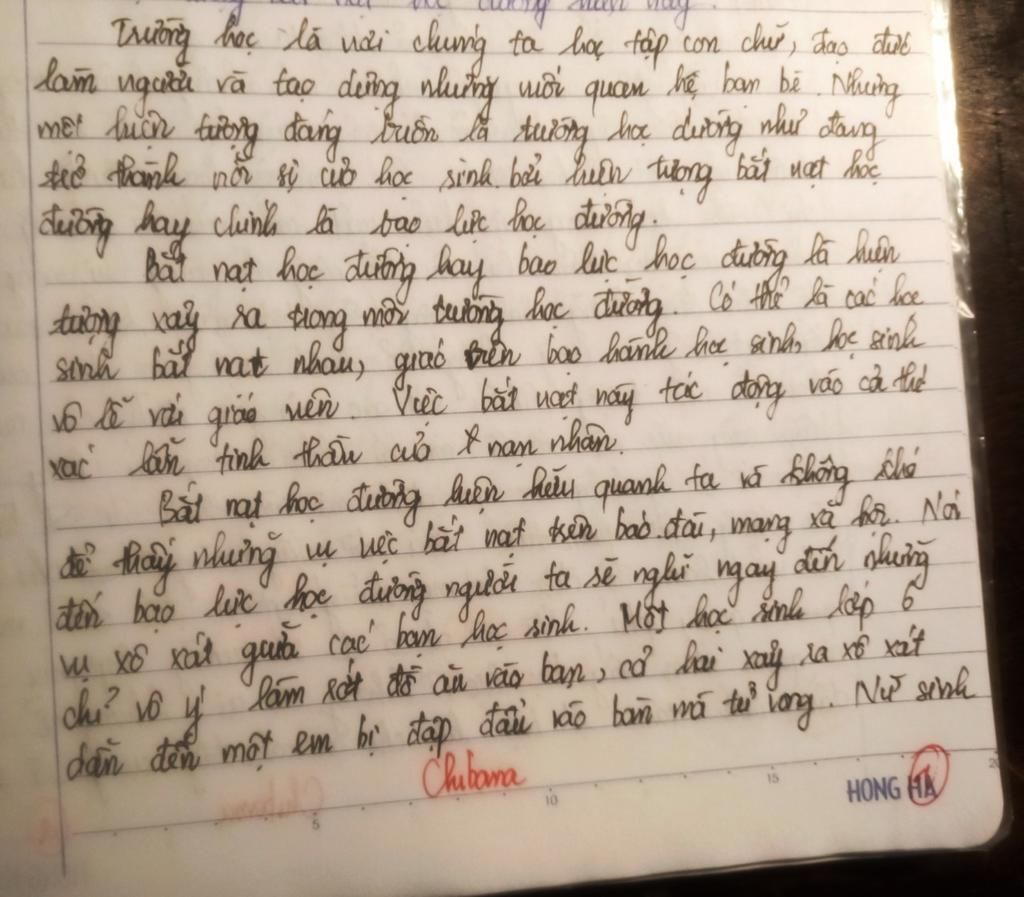 Trường học là nơi chúng ta học tập con chữ, đạo đức
làm người và tạo dựng những mối quan hệ bạn bè. Nhưng
một hiện tượng đáng buồn là trường học dường như đang
trở thành nỗi sợ của học sinh bởi hiện tượng bắt nạt học
đường hay chính là bạo lực học đường.
Bắt nạt học đường hay bạo lực học đường là hiện
tượng xảy ra trong môi trường học đường. Có thể là các học
sinh bắt nạt nhau, giáo viên bạo hành học sinh, học sinh
vô lễ với giáo viên. Việc bắt nạt này tác động vào cả thể
xác lẫn tinh thần của nạn nhân.
Bắt nạt học đường hiện hữu quanh ta và không khó
để thấy những vụ việc bắt nạt trên báo đài, mạng xã hội. Nói
đến bạo lực học đường người ta sẽ nghĩ ngay đến những
vụ xô xát giữa các bạn học sinh. Một học sinh lớp 6
chỉ vô ý làm rớt đồ ăn vào bạn, cả hai xảy ra xô xát
dẫn đến một em bị đập đầu vào bàn mà tử vong. Nữ sinh
Chibana
5 10 15 20
HONG HA